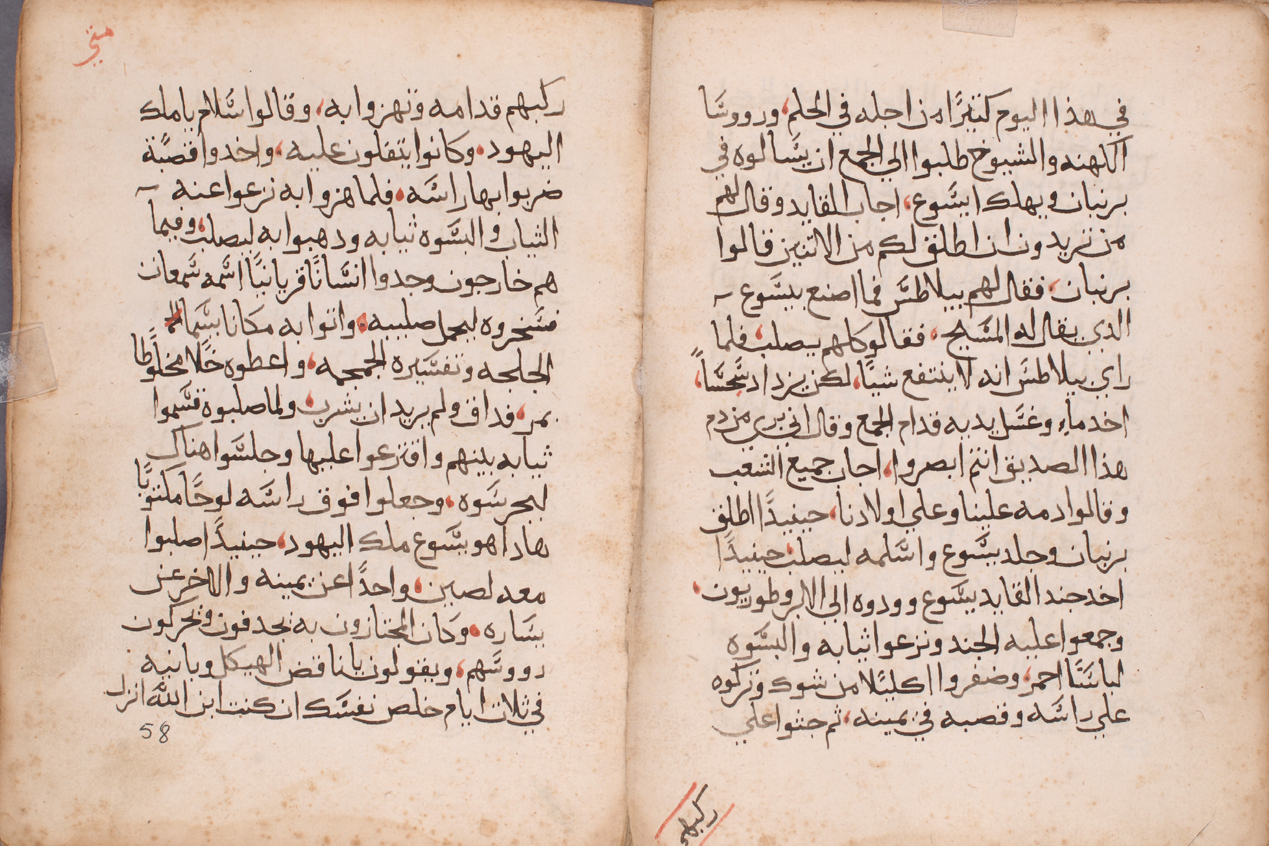 في هذا اليوم كثيرًا من اجله في الحلم، ورووسَا
الكهنه والشيوخ طلبوا الي الجمع ان يسَالوه في
برنبان ويهلك ايسَوع، اجاب القايد وقال لهم
من تريدون ان اطلق لكم من الاتنين قالوا
برنبان، فقال لهم بيلاطسَ فما اصنع بيسَوع
الذي يقال له المسَيح، فقالو كلهم يصلب، فلما
راي بيلاطسَ انه لا ينتفع شيًا، لكن يزداد سَجسًَا،
اخد ماء وغسَل يديه قدام الجمع وقال اني بري من دم
هذا الصديق انتم ابصروا، اجاب جميع الشعب
وقالوا دمه علينا وعلي اولادنا، حينيدًا اطلق
برنبان وجلد يسَوع واسَلمه ليصلب، حينيدًا
اخد جند القايد يسَوع وودوه الي الابروطوريون،
وجمعوا عليه الجند ونزعوا ثيابه والبسَوه
لباسًَا احمر، وضفروا اكليلا من شوك وتركوه
علي راسَه وقصبه في يمينه، ثم جثوا علي
ركبهم
متي
ركبهم قدامه وتهزوا به، وقالوا سَلام يا ملك
اليهود، وكانوا يتفلون عليه، واخدوا قصبًة
ضربوا بها راسَه، فلما هزوا به نزعوا عنه
الثياب والبسَوه ثيابه ودهبوا به ليصلب، وفيما
هم خارجون وجدوا انسَانًا قريانيًا اسَمه سَمعان
فسَخروه ليحمل صليبه، واتوا به مكانا يسَما
الجلجله وتفسَيره الجمجمه، واعطوه خًلا مخلوًطا
بمر، فداق ولم يريد ان يشرب، ولما صلبوه قسَموا
ثيابه بينهم واقترعوا عليها وجلسَوا هناك
ليحرسَوه، وجعلوا فوق راسَه لوحًا مكتوبًا
هادا هو يسَوع ملك اليهود، حينيدًا صلبوا
معه لصين، واحدًا عن يمينه والاخر عن
يسَاره، وكان المجتازون به يجدفون ويحركون
رووسَهم، ويقولون يا ناقض الهيكل وبانيه
في ثلات ايام خلص نفسَك ان كنت ابن اللّه انزل
58